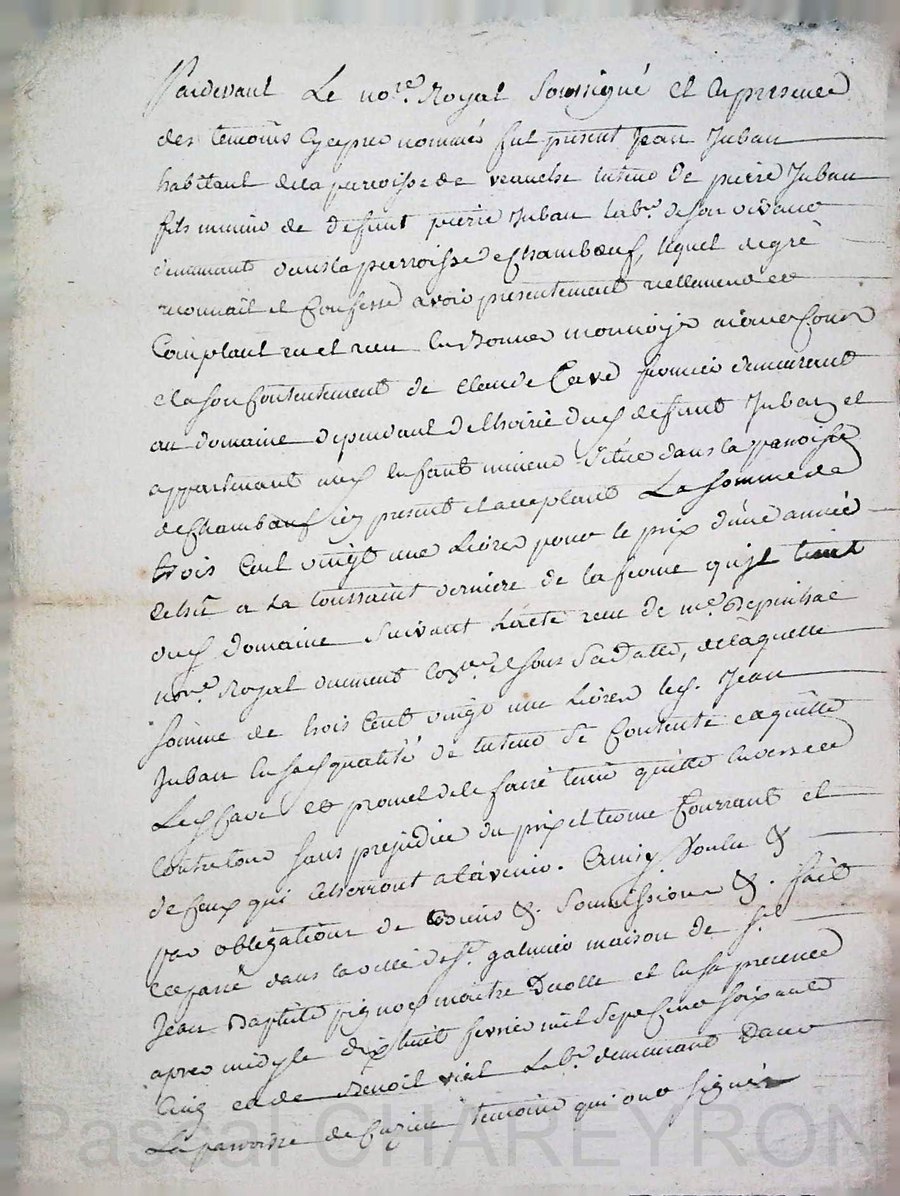 Pardevant Le no.re Royal soussigné et en presence
des temoins cy apres nommés fut present Jean Juban
habitant de la parroisse de veauche tuteur de pierre Juban
fils mineur de defunt pierre Juban lab.r de son vivant
demeurant dans la parroisse de Chambœuf, lequel de gré
reconnait et Confesse avoir presentement reellement et
Comptant eu et reçu en bonne monnoye aiant Cours
et a son Contentement de Claude Cave fermier demeurant
au domaine dependant de lhoirie dud. defunt Juban et
appartenant aud. enfant mineur situé dans la parroisse
de Chambœuf icy present et acceptant La somme de
trois Cent vingt une Livres pour le prix d'une année
echue a la toussaint derniere de la ferme qu'il tient
dud. domaine suivant L'acte reçu de m.e Depinhac
no.re Royal duement Con.lé sous sa datte, de laquelle
somme de trois Cent vingt une Livres led. Jean
Juban en sad. qualité de tuteur se Contente en quitte
Led. Cave et promet de le faire tenir quitte envers et
Contre tous sans prejudice du prix et terme Courrant et
de Ceux qui echerront a l'avenir. Ainsy Voulu &
par obligations de Biens &. Soumissions &. fait
et passé dans la ville de S.t galmier maison de S.r
Jean Baptiste pignol maitre Decolle et en sa presence
apres midy le dix huit fevrier mil sept Cent soixante
Cinq et de Benoit vial Lab.r demeurant dans
La parroisse de Cuzieu temoins qui ont signés
Pascal CHAREYRON